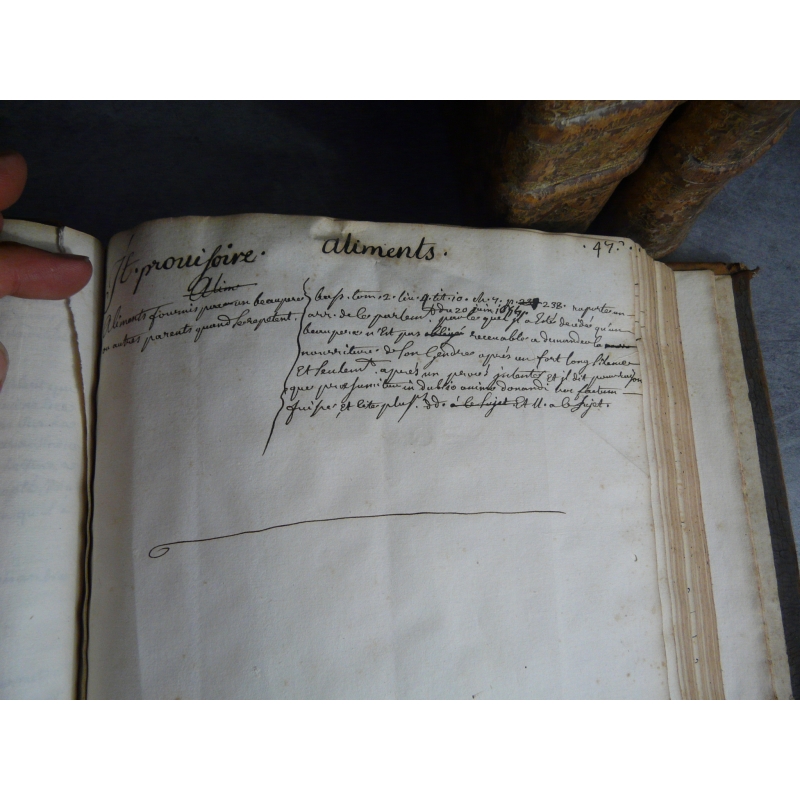 It. provisoire. aliments. 47.
Alim
Aliments fournis par un beaupere
ou autres parents quand se repetent.
bass. tom. 2. liv. 4. tit. 10. ch. 7. 238. raporte un
arr. de ce parlem.t du 20 juin par lequel il a esté decidé qu'un
beaupere n'Est pas obligé recevable a demander la
nourriture de son Gendre après un fort long silence
Et seulem.t après un procès intenté et il dit pour raison
que præsumitur in dubio animo donandi hoc factum
fuisse et cite plus.rs dd. a le sujet Et ll. a le sujet.